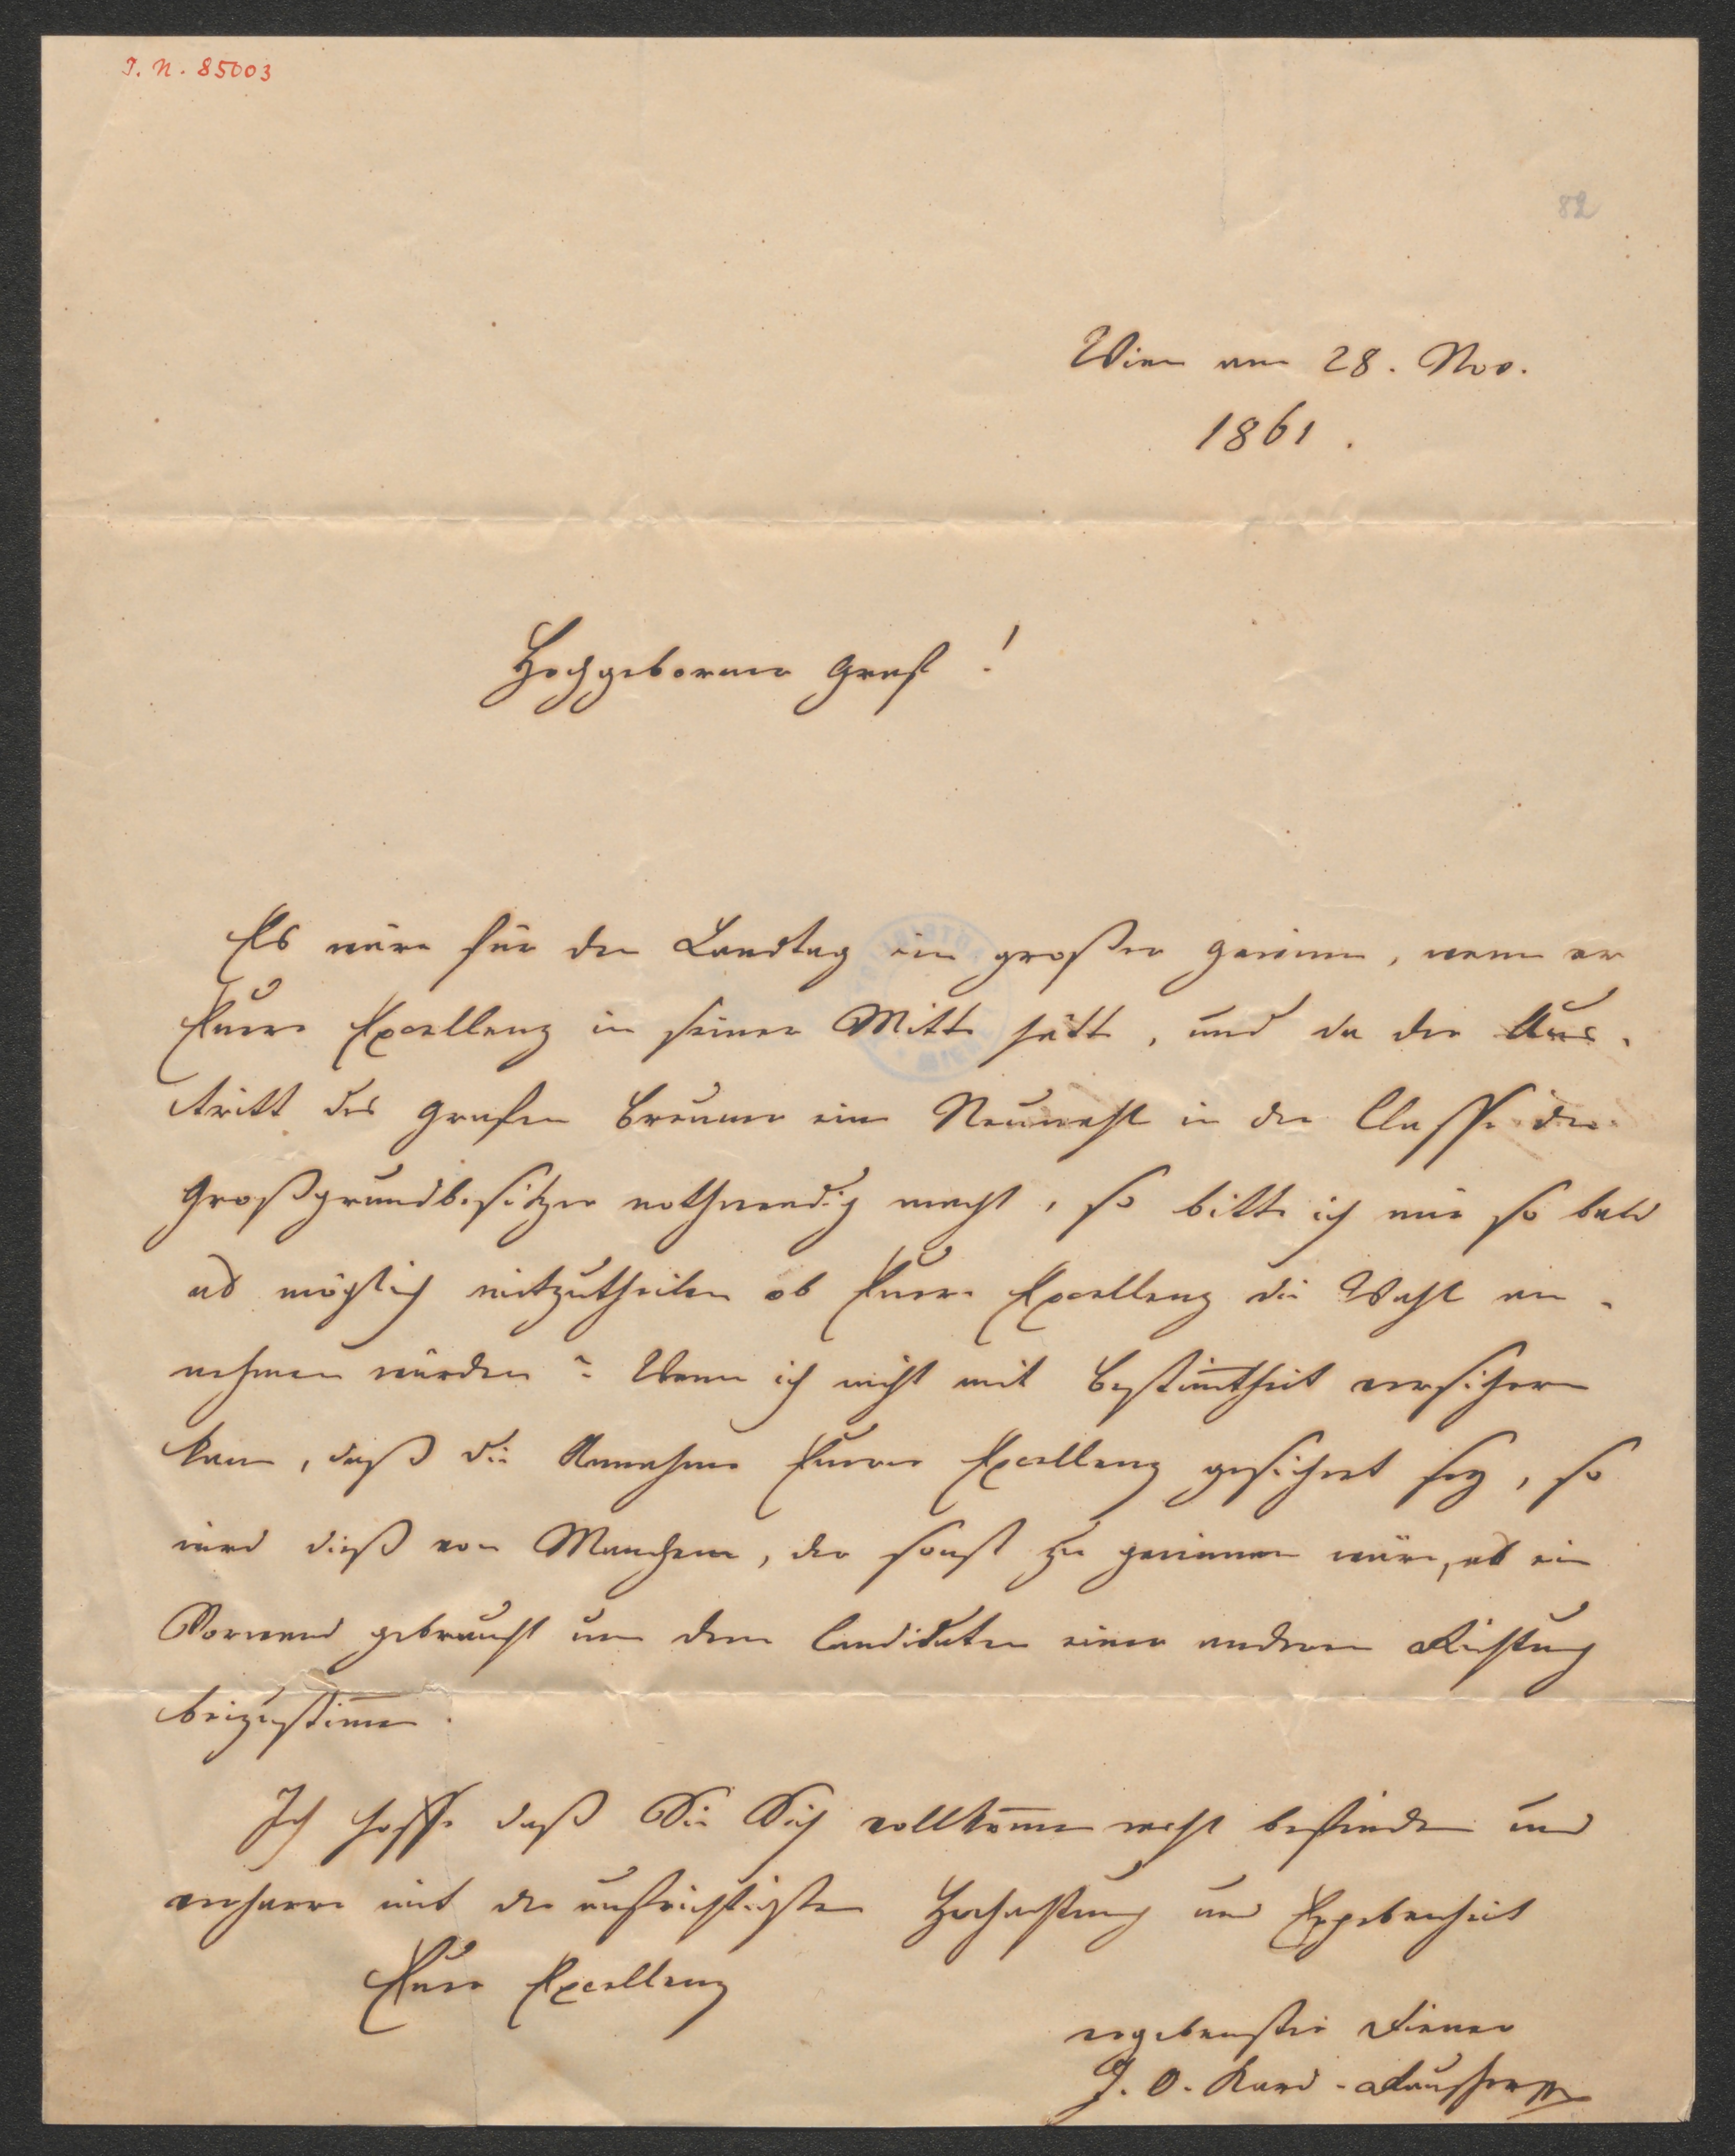 I. N. 85003
82
Wien am 28. Nov.
1861.
Hochgeborner Graf!
Es wäre für den Landtag ein großer Gewinn, wenn er
Euere Excellenz in seiner Mitte hätte, und da der Aus-
tritt des Grafen Breuner eine Neuwahl in der Classe der
Großgrundbesitzer nothwendig macht, so bitte ich mir so bald
als möglich mitzutheilen ob Euere Excellenz die Wahl an-
nehmen würden? Wenn ich nicht mit Bestim̄theit versichern
kann, daß die Annahme Euerer Excellenz gesichert sey, so
wird dieß von Manchem, der sonst zu gewinnen wäre, als ein
Vorwand gebraucht um dem Candidaten einer anderen Richtung
beizustim̄en.
Ich hoffe daß Sie Sich vollkom̄en wohl befinden und
verharre mit der aufrichtigsten Hochachtung und Ergebenheit
Euer Excellenz
ergebenster Diener
J. O. Kard. Rauscher